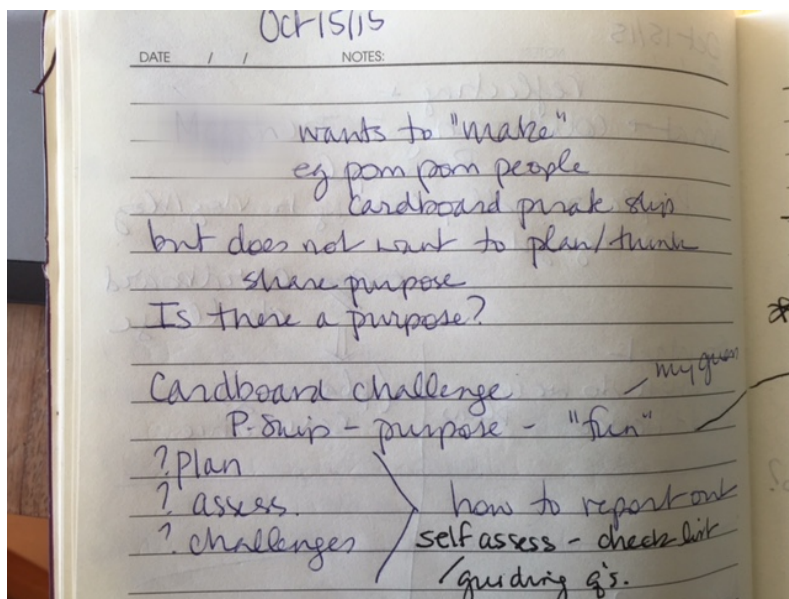 Oct 15/15
DATE / / NOTES:
wants to "make"
eg pom pom people
cardboard pirate ship
but does not want to plan/think
share purpose
Is there a purpose?
my guess
Cardboard challenge
P-Ship - purpose - "fun"
? plan
? assess.
? challenges
how to report out
self assess - checklist
/guiding q's.